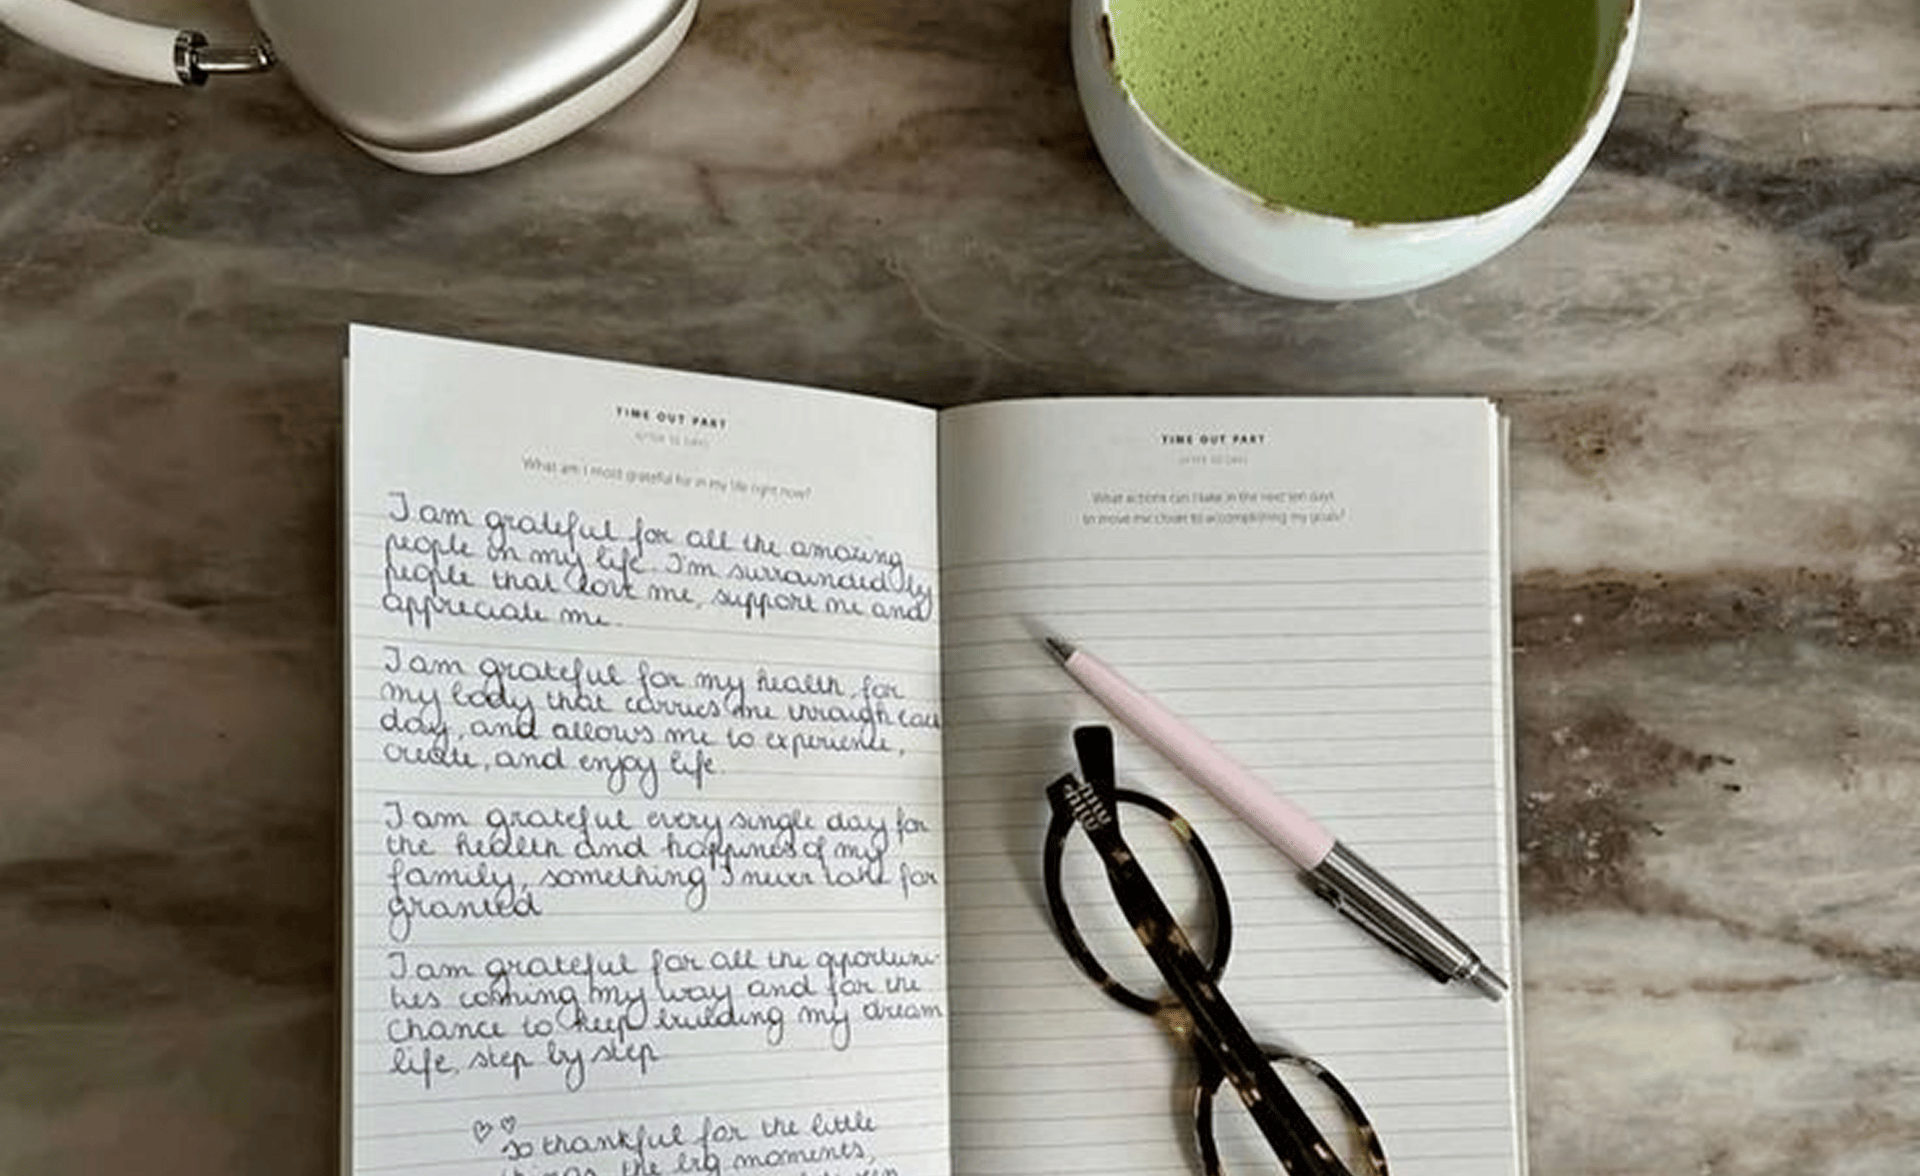 TIME OUT PART
AFTER 10 DAYS
What am I most grateful for in my life right now?
I am grateful for all the amazing
people in my life. I'm surrounded by
people that love me, support me and
appreciate me.
I am grateful for my health, for
my body that carries me through each
day, and allows me to experience,
create, and enjoy life.
I am grateful every single day for
the health and happiness of my
family, something I never take for
granted
I am grateful for all the opportuni-
ties coming my way and for the
chance to keep building my dream
life, step by step
So thankful for the little
things, the big moments,
TIME OUT PART
AFTER 10 DAYS
What actions can I take in the next ten days
to move me closer to accomplishing my goals?
miu miu